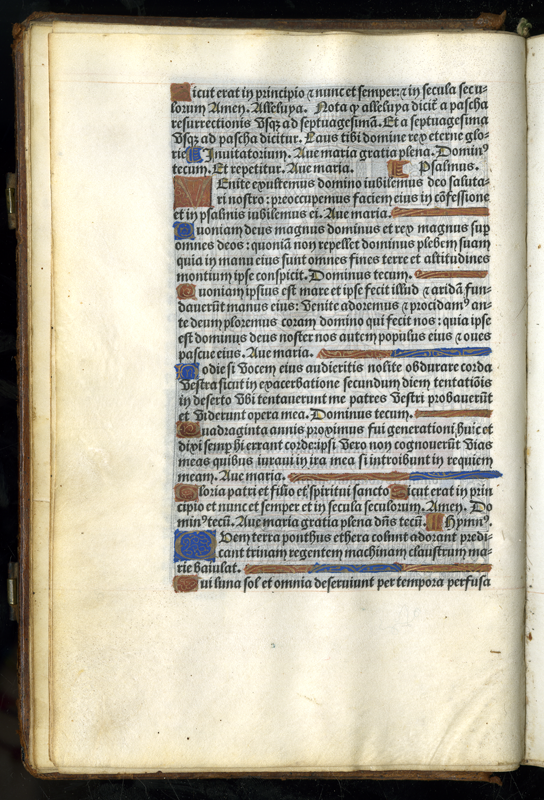 Sicut erat in principio ⁊ nunc et semper: ⁊ in secula secu-
lorum Amen. Alleluya. Nota ꝙ alleluya dicit̃ a pascha
resurrectionis vsqꝫ ad septuagesimã. Et a septuagesima
vsqꝫ ad pascha dicitur. Laus tibi domine rex eterne glo-
rie Inuitatorium. Aue maria gratia plena. Dominꝰ
tecum. Et repetitur. Aue maria. Psalmus.
Venite exultemus domino iubilemus deo saluta-
ri nostro: preoccupemus faciem eius in cõfessione
et in psalmis iubilemus ei. Aue maria.
Quoniam deus magnus dominus et rex magnus sup
omnes deos: quoniã non repellet dominus plebem suam
quia in manu eius sunt omnes fines terre et altitudines
montium ipse conspicit. Dominus tecum.
Quoniam ipsius est mare et ipse fecit illud ⁊ aridã fun-
dauerũt manus eius: venite adoremus ⁊ procidamꝰ an-
te deum ploremus coram domino qui fecit nos: quia ipse
est dominus deus noster nos autem populus eius ⁊ oues
pascue eius. Aue maria.
Hodie si vocem eius audieritis nolite obdurare corda
vestra sicut in exacerbatione secundum diem tentatiõis
in deserto vbi tentauerunt me patres vestri probauerũt
et viderunt opera mea. Dominus tecum.
Quadraginta annis proximus fui generationi huic et
dixi semp hi errant corde: ipsi vero non cognouerũt vias
meas quibus iuraui in ira mea si introibunt in requiem
meam. Aue maria.
Gloria patri et filio et spiritui sancto Sicut erat in prin
cipio et nunc et semper et in secula seculorum. Amen. Do
minꝰ tecũ. Aue maria gratia plena dñs tecũ. Hymnꝰ.
Quem terra ponthus ethera colunt adorant predi-
cant trinam regentem machinam claustrum ma-
rie baiulat.
Cui luna sol et omnia deseruiunt per tempora perfusa